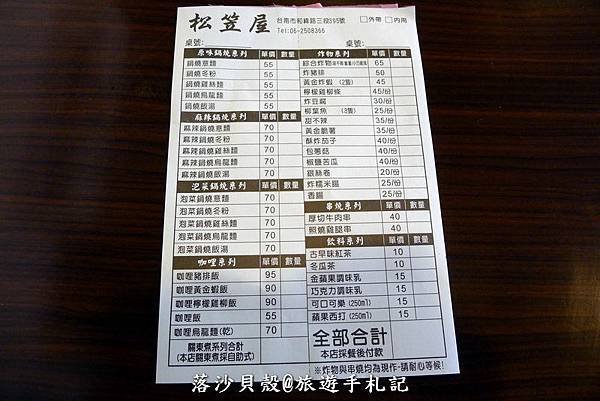 松笠屋 台南市和緯路三段395號 □外帶 □內用
Tel:06-2508366
桌號: 桌號:
原味鍋燒系列 單價 數量
鍋燒意麵 55
鍋燒冬粉 55
鍋燒雞絲麵 55
鍋燒烏龍麵 55
鍋燒飯湯 55
麻辣鍋燒系列 單價 數量
麻辣鍋燒意麵 70
麻辣鍋燒冬粉 70
麻辣鍋燒雞絲麵 70
麻辣鍋燒烏龍麵 70
麻辣鍋燒飯湯 70
泡菜鍋燒系列 單價 數量
泡菜鍋燒意麵 70
泡菜鍋燒冬粉 70
泡菜鍋燒雞絲麵 70
泡菜鍋燒烏龍麵 70
泡菜鍋燒飯湯 70
咖哩系列 單價 數量
咖哩豬排飯 95
咖哩黃金蝦飯 90
咖哩檸檬雞柳飯 90
咖哩飯 55
咖哩烏龍麵(乾) 70
關東煮系列合計
(本店關東煮採自助式)
炸物系列 單價 數量
綜合炸物 65
炸豬排 50
黃金炸蝦 (2隻) 45
檸檬雞柳條 45/份
炸豆腐 30/份
柳葉魚 (3隻) 25/份
甜不辣 35/份
黃金脆薯 35/份
酥炸茄子 40/份
包蔥菇 40/份
椒鹽苦瓜 40/份
銀絲卷 20/份
炸糯米腸 25/份
香腸 25/份
串燒系列 單價 數量
厚切牛肉串 40
照燒雞腿串 40
飲料系列 單價 數量
古早味紅茶 10
冬瓜茶 10
金蘋果調味乳 15
巧克力調味乳 15
可口可樂(250ml) 15
蘋果西打(250ml) 15
全部合計
本店採餐後付款
※炸物與串燒均為現作,請耐心等候!
落沙貝殼@旅遊手札記